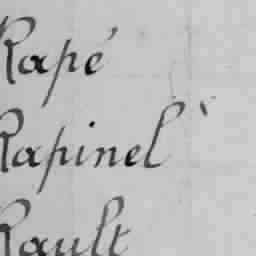 Rapé
Rapinel
Rault